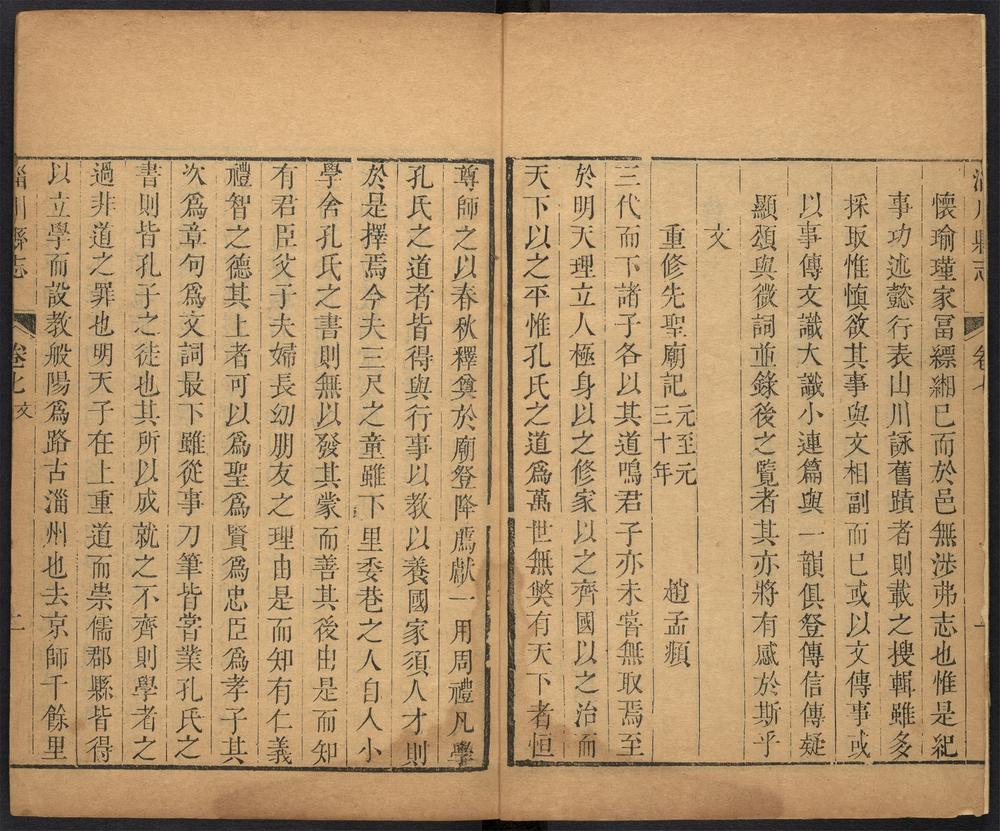 淄川縣志 卷七 一
懷瑜瑾家冨縹緗已而於邑無涉弗志也惟是紀
事功述懿行表山川詠舊蹟者則載之搜輯雖多
採取惟慎欲其事與文相副而巳或以文傳事或
以事傳文識大識小連篇與一韻俱登傳信傳疑
顯頌與微詞並錄後之覽者其亦將有感於斯乎
文
重修先聖廟記元至元三十年 趙孟頫
三代而下諸子各以其道鳴君子亦未甞無取焉至
於明天理立人極身以之修家以之齊國以之治而
天下以之平惟孔氏之道爲萬世無獘有天下者恒
尊師之以春秋釋奠於廟登降薦獻一用周禮凡學
孔氏之道者皆得與行事以教以養國家須人才則
於是擇焉今夫三尺之童雖下里委巷之人自入小
學舍孔氏之書則無以發其蒙而善其後由是而知
有君臣父子夫婦長幼朋友之理由是而知有仁義
禮智之德其上者可以爲聖爲賢爲忠臣爲孝子其
次爲章句爲文詞最下雖從事刀筆皆甞業孔氏之
書則皆孔子之徒也其所以成就之不齊則學者之
過非道之罪也明天子在上重道而崇儒郡縣皆得
以立學而設教般陽爲路古淄州也去京師千餘里
淄川縣志 卷七 文 二